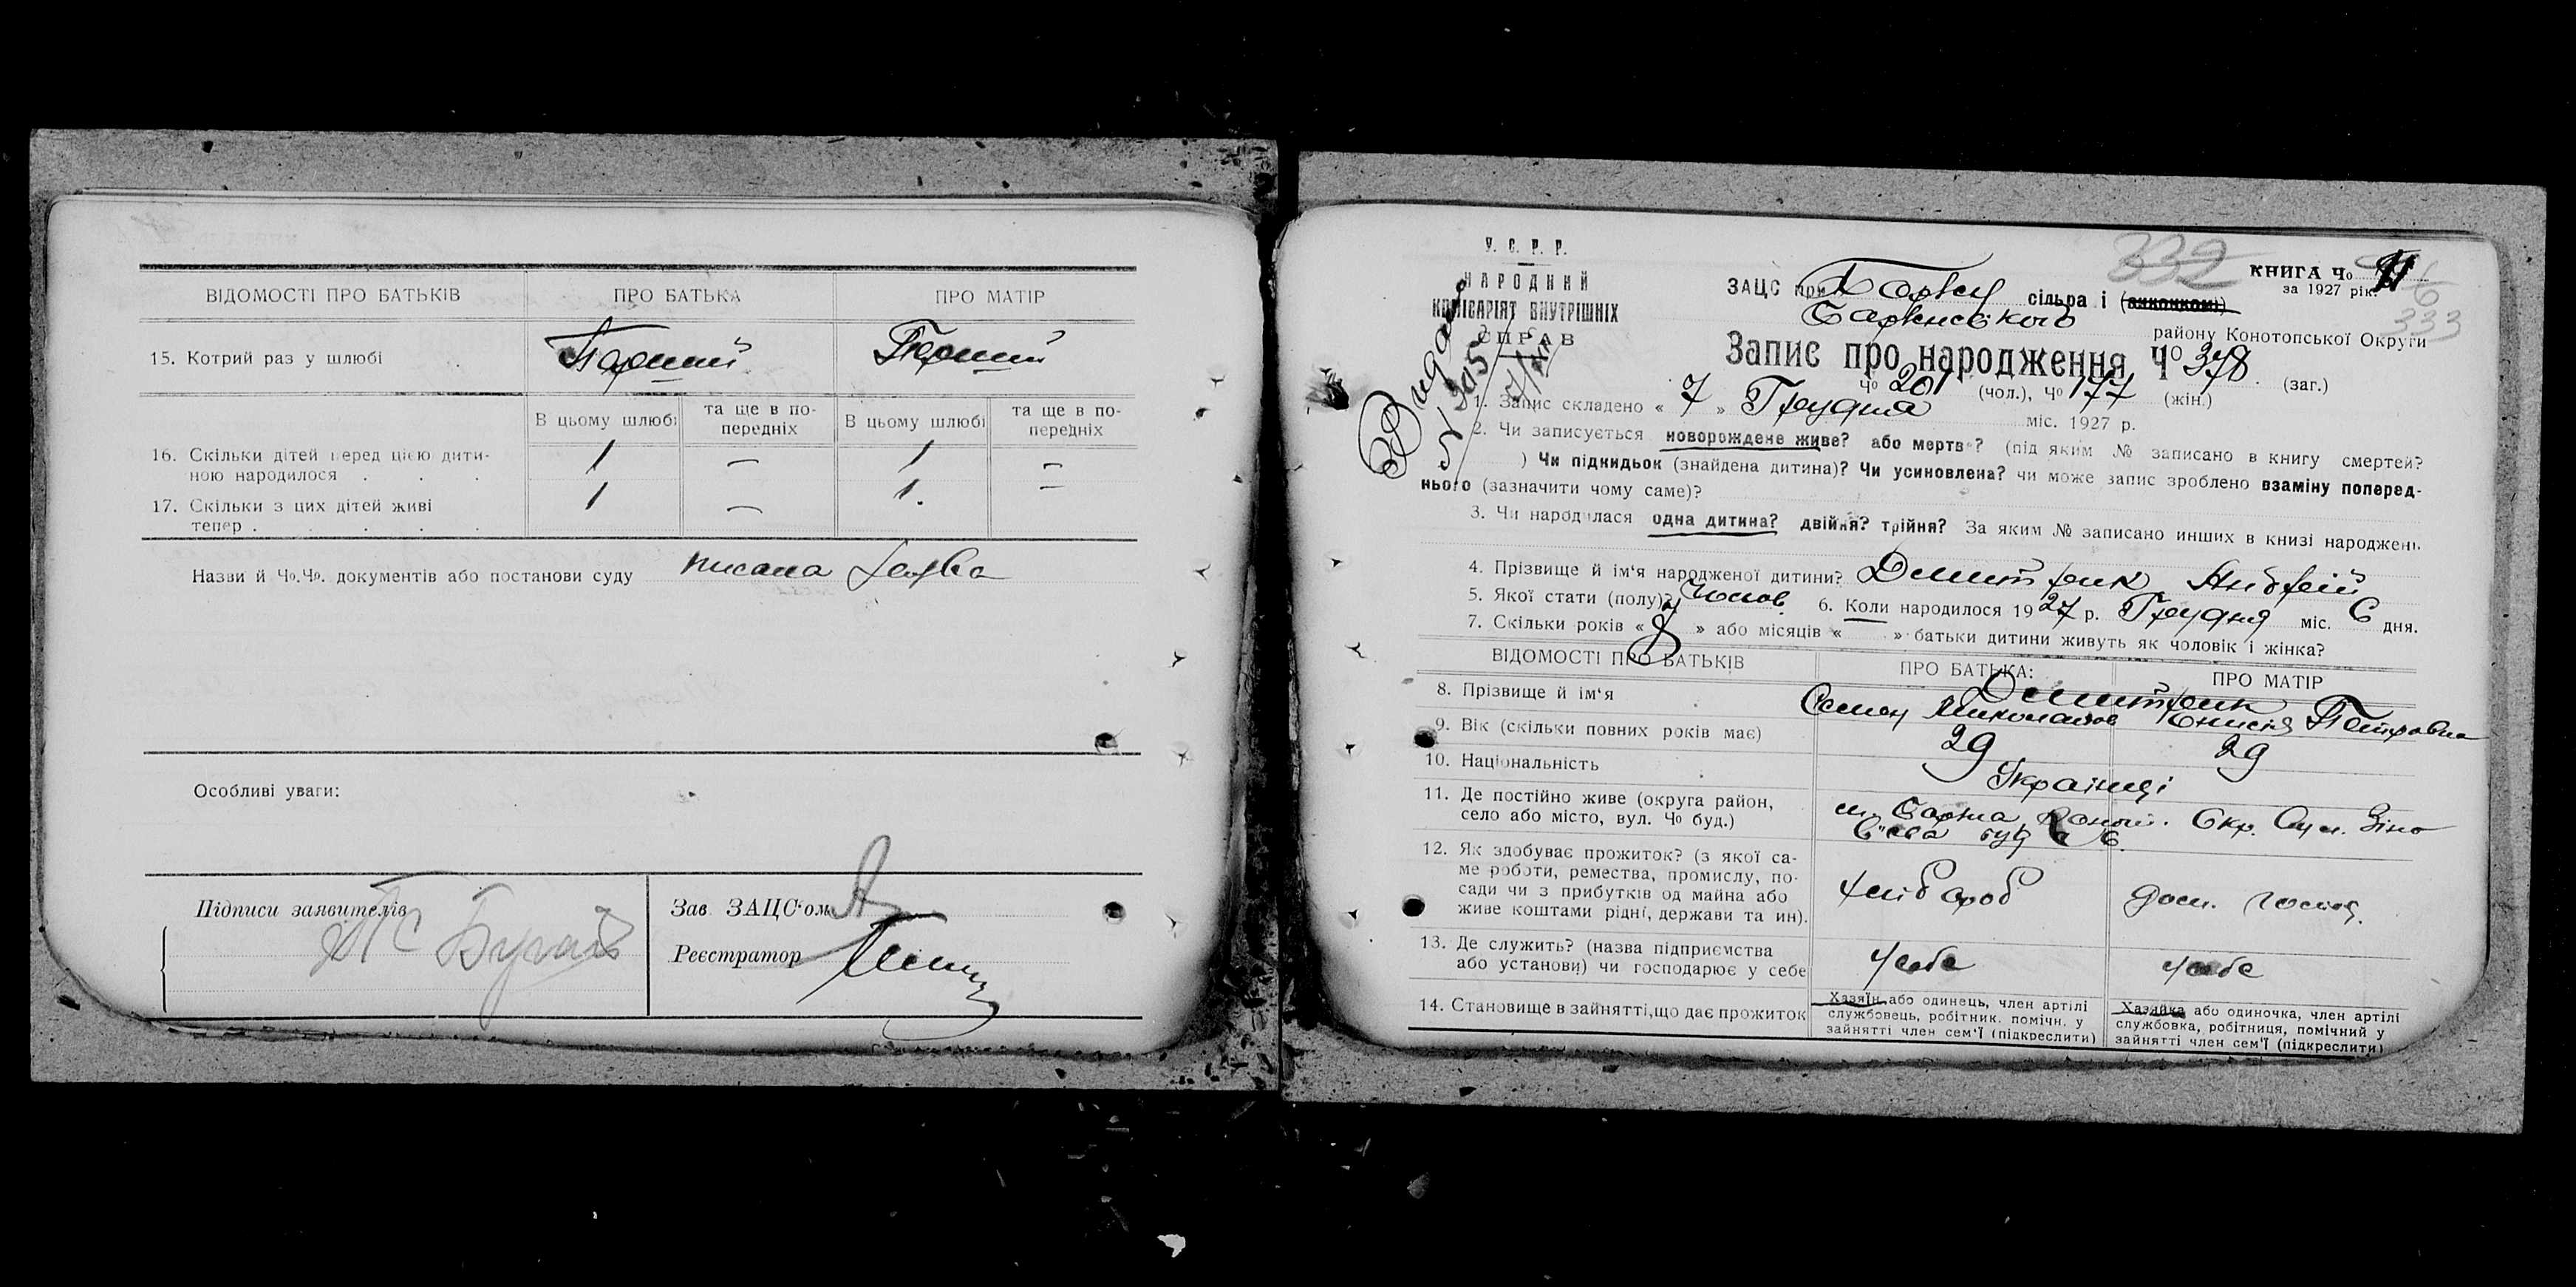 ВІДОМОСТІ ПРО БАТЬКІВ ПРО БАТЬКА ПРО МАТІР
15. Котрий раз у шлюбі Перший Перший
В цьому шлюбі та ще в попередніх В цьому шлюбі та ще в попередніх
16. Скільки дітей перед цією дити-
ною народилося . . . 1 — 1 —
17. Скільки з цих дітей живі
тепер . . . . . 1 — 1. —
Назви й Чо.Чо. документів або постанови суду писана заява
Особливі уваги:
Підписи заявителів
Зав ЗАЦС'ом
Реєстратор
У. С. Р. Р.
НАРОДНИЙ
КОМІСАРІЯТ ВНУТРІШНІХ
СПРАВ
332
КНИГА Чо
за 1927 рік.
6
333
ЗАЦС при сільра і (виконкомі)
району Конотопської Округи
Запис про народження Чо 378 (заг.)
Чо 201 (чол.), Чо 177 (жін.)
1. Запис складено « 7 » Грудня міс. 1927 р.
2. Чи записується новорождене живе? або мертве? (під яким № записано в книгу смертей?
) Чи підкидьок (знайдена дитина)? Чи усиновлена? чи може запис зроблено взаміну поперед-
нього (зазначити чому саме)?
3. Чи народилася одна дитина? двійня? трійня? За яким № записано инших в книзі народжень
4. Прізвище й ім'я народженої дитини? Дмитрик Андрій
5. Якої стати (полу)? Чолов. 6. Коли народилося 1927 р. Грудня міс. 6 дня.
7. Скільки років « 8 » або місяців « » батьки дитини живуть як чоловік і жінка?
ВІДОМОСТІ ПРО БАТЬКІВ ПРО БАТЬКА: ПРО МАТІР
8. Прізвище й ім'я Дмитрик
Семен Миколайов Петровна
9. Вік (скільки повних років має) 29 29
10. Національність Українці
11. Де постійно живе (округа район,
село або місто, вул. Чо буд.)
12. Як здобуває прожиток? (з якої са-
ме роботи, ремества, промислу, по-
сади чи з прибутків од майна або
живе коштами рідні, держави та ин). хлібороб дом. господ.
13. Де служить? (назва підприємства
або установи) чи господарює у себе у себе у себе
14. Становище в зайнятті, що дає прожиток
Хазяїн або одинець, член артілі
службовець, робітник. помічн. у
зайнятті член сем'ї (підкреслити)
Хазяйка або одиночка, член артілі
службовка, робітниця, помічний у
зайнятті член сем'ї (підкреслити)